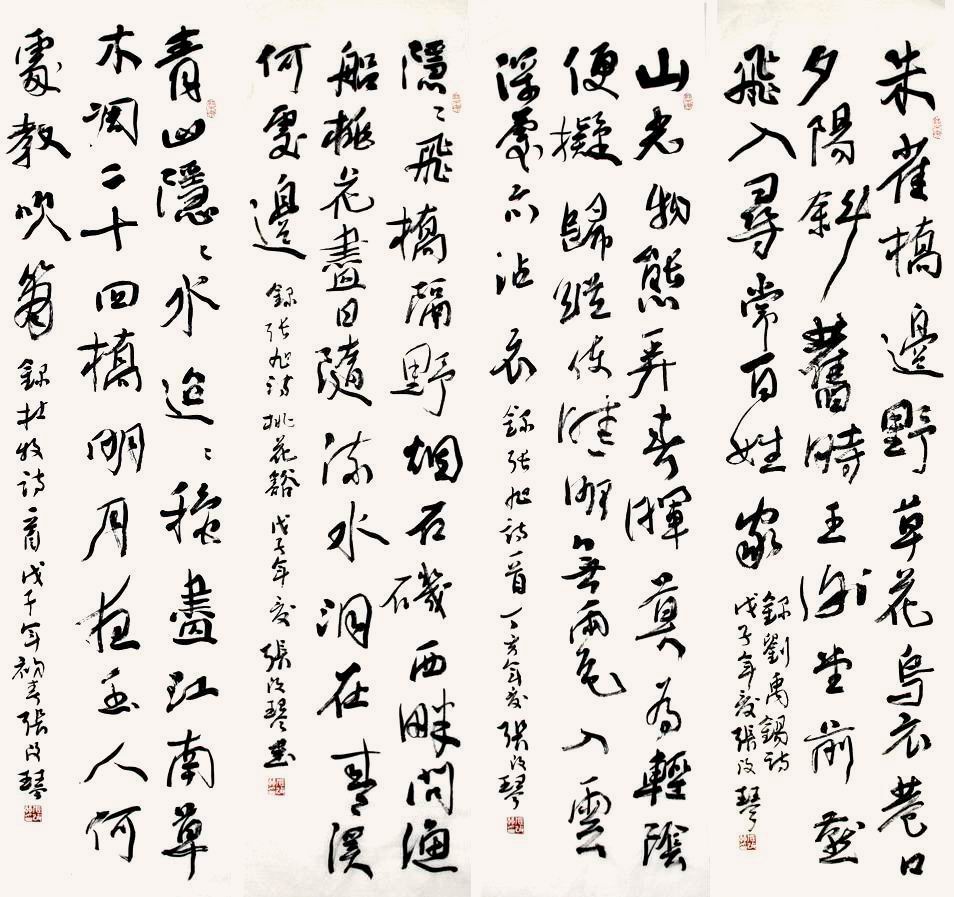 朱雀橋邊野草花烏衣巷口
夕陽斜舊時王謝堂前燕
飛入尋常百姓家
錄劉禹錫詩
戊子年夏張改琴
山光物態弄春暉莫為輕陰
便擬歸縱使晴明無雨色入雲
深處亦沾衣
錄張旭詩一首丁亥年夏張改琴
隱隱飛橋隔野烟石磯西畔問漁
船桃花盡日隨流水洞在青溪
何處邊
錄張旭詩桃花谿戊子年夏張改琴書
青山隱隱水迢迢秋盡江南草
木凋二十四橋明月夜玉人何
處教吹簫
錄杜牧詩一首戊子年初春張改琴